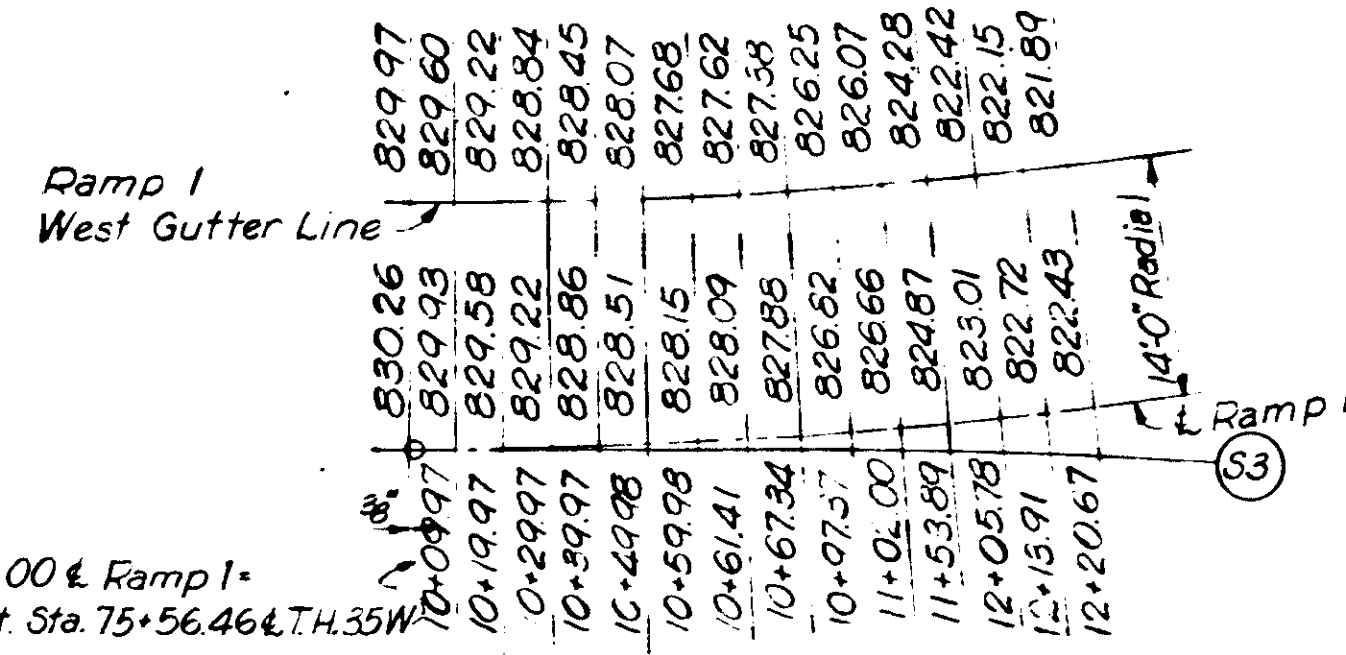 829.97
829.60
829.22
828.84
828.45
828.07
827.68
827.62
827.38
826.25
826.07
824.28
822.42
822.15
821.89
Ramp 1
West Gutter Line
830.26
829.93
829.58
829.22
828.86
828.51
828.15
828.09
827.88
826.82
826.66
824.87
823.01
822.72
822.43
14'-0" Radial
℄ Ramp
S3
3/8"
10+09.97
10+19.97
0+29.97
10+39.97
10+49.98
10+59.98
10+61.41
10+67.34
10+97.37
11+02.00
11+53.89
12+05.78
12+13.91
12+20.67
00 ℄ Ramp 1=
t. Sta. 75+56.46 ℄ T.H. 35W